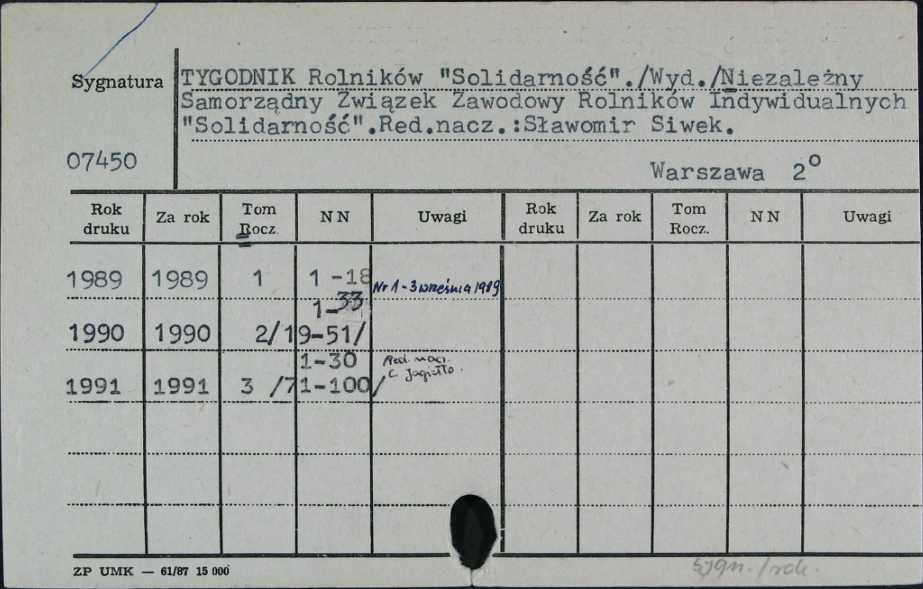 Sygnatura
07450
TYGODNIK Rolników "Solidarność"./Wyd./Niezależny
Samorządny Związek Zawodowy Rolników Indywidualnych
"Solidarność".Red.nacz.:Sławomir Siwek.
Warszawa 2º
Rok druku Za rok Tom Rocz. NN Uwagi Rok druku Za rok Tom Rocz. NN Uwagi
1989 1989 1 1 -18 Nr 1 - 3 września 1989
1-33
1990 1990 2/19-51/
1-30 Red. nacz.
1991 1991 3 /71-100/ C. Jagiełło.
ZP UMK — 61/87 15 000
sygn./rok.